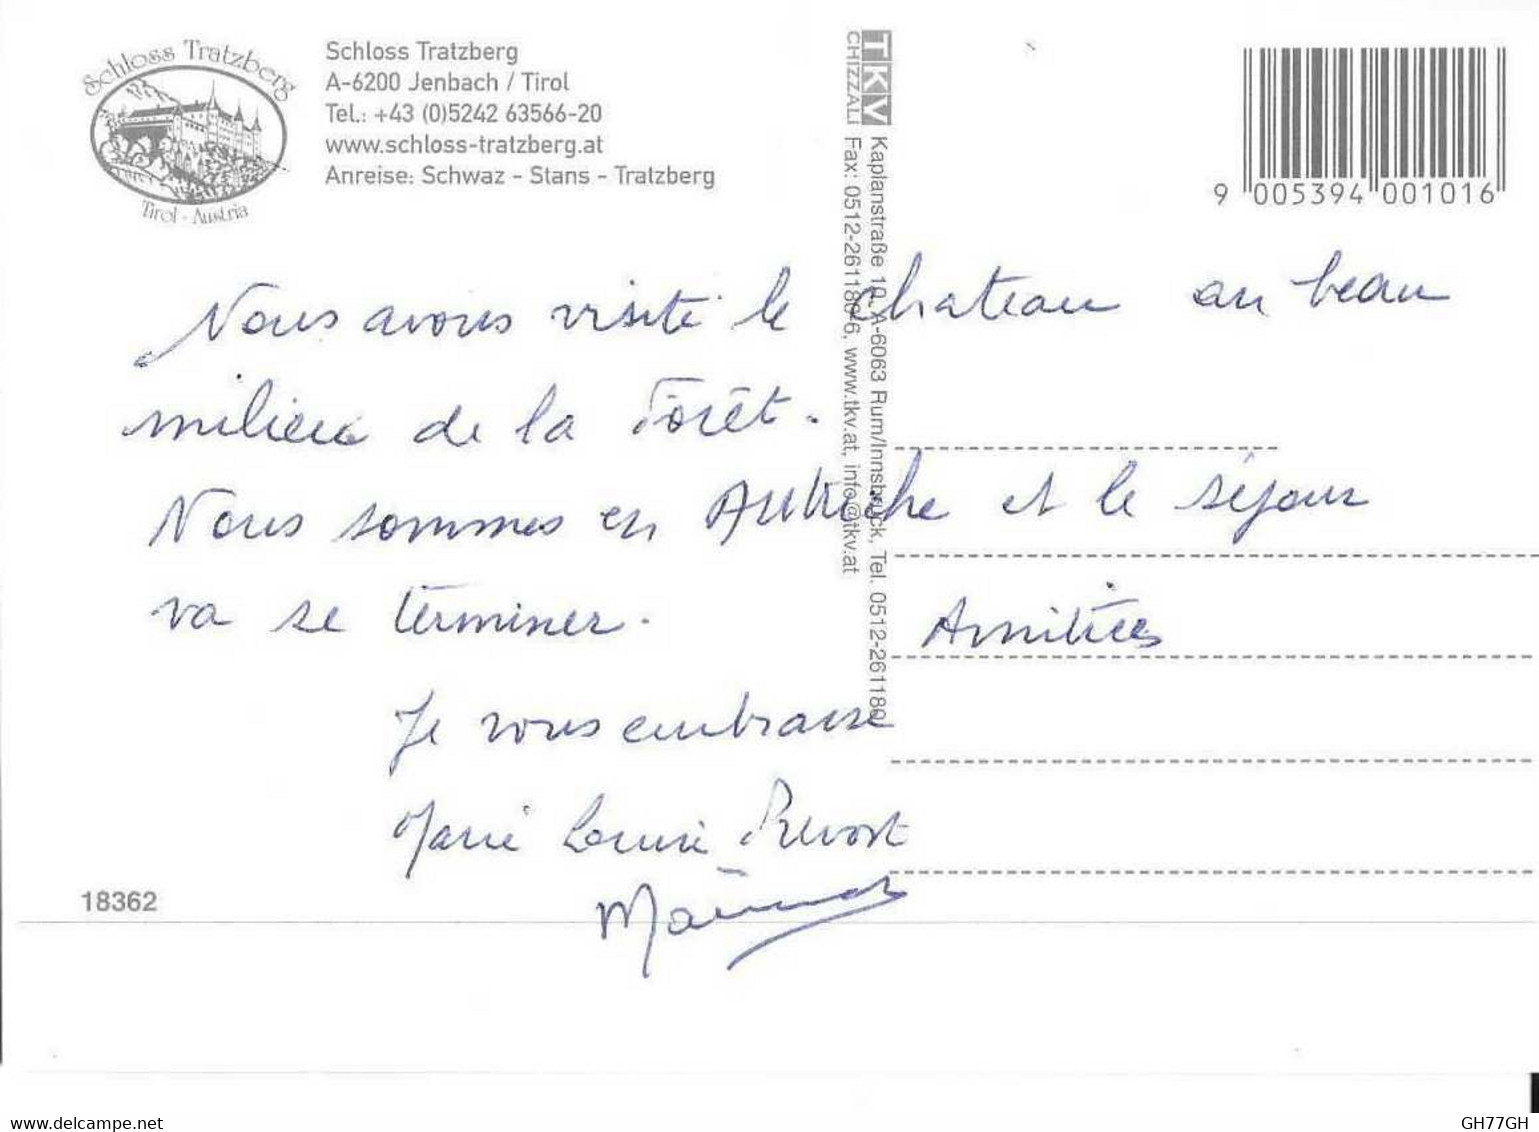 Schloss Tratzberg
Tirol - Austria
Schloss Tratzberg
A-6200 Jenbach / Tirol
Tel.: +43 (0)5242 63566-20
www.schloss-tratzberg.at
Anreise: Schwaz - Stans - Tratzberg
TKV
CHIZZALI
Kaplanstraße 10, A-6063 Rum/Innsbruck, Tel. 0512-261180
Fax: 0512-261180-6, www.tkv.at, info@tkv.at
9 005394 001016
Nous avons visité le chateau au beau
milieu de la Forêt.
Nous sommes en Autriche et le séjour
va se terminer.
Amitiées
Je vous embrasse
Marie Louise Prevost
18362
www.delcampe.net
GH77GH